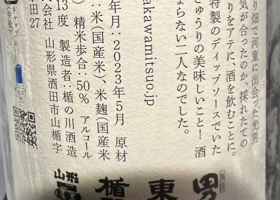 り畑で河童に出逢った光男
気が合ったのか、採れたての
りをアテに、酒を飲むことに。
特製のディップソースでいた
ゅうりの美味しいこと！酒
ならない二人なのでした。
akawamitsuo.jp
年月：2023年5月 原材
：米(国産米)、米麹(国産米
精米歩合：50% アルコール
13度 製造者：楯の川酒造
会社 山形県酒田市山楯字
田27
山形
楯
東
男